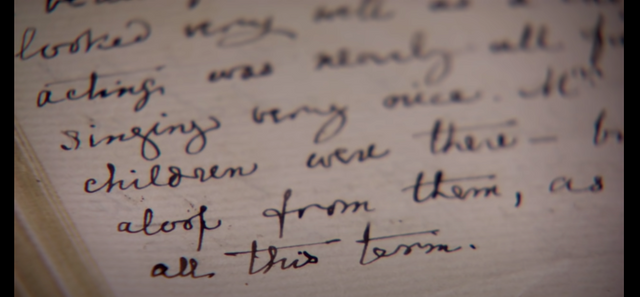 looked very well as a
acting was nearly all
singing very nice. Mrs
children were there — b
aloof from them, as
all this term.